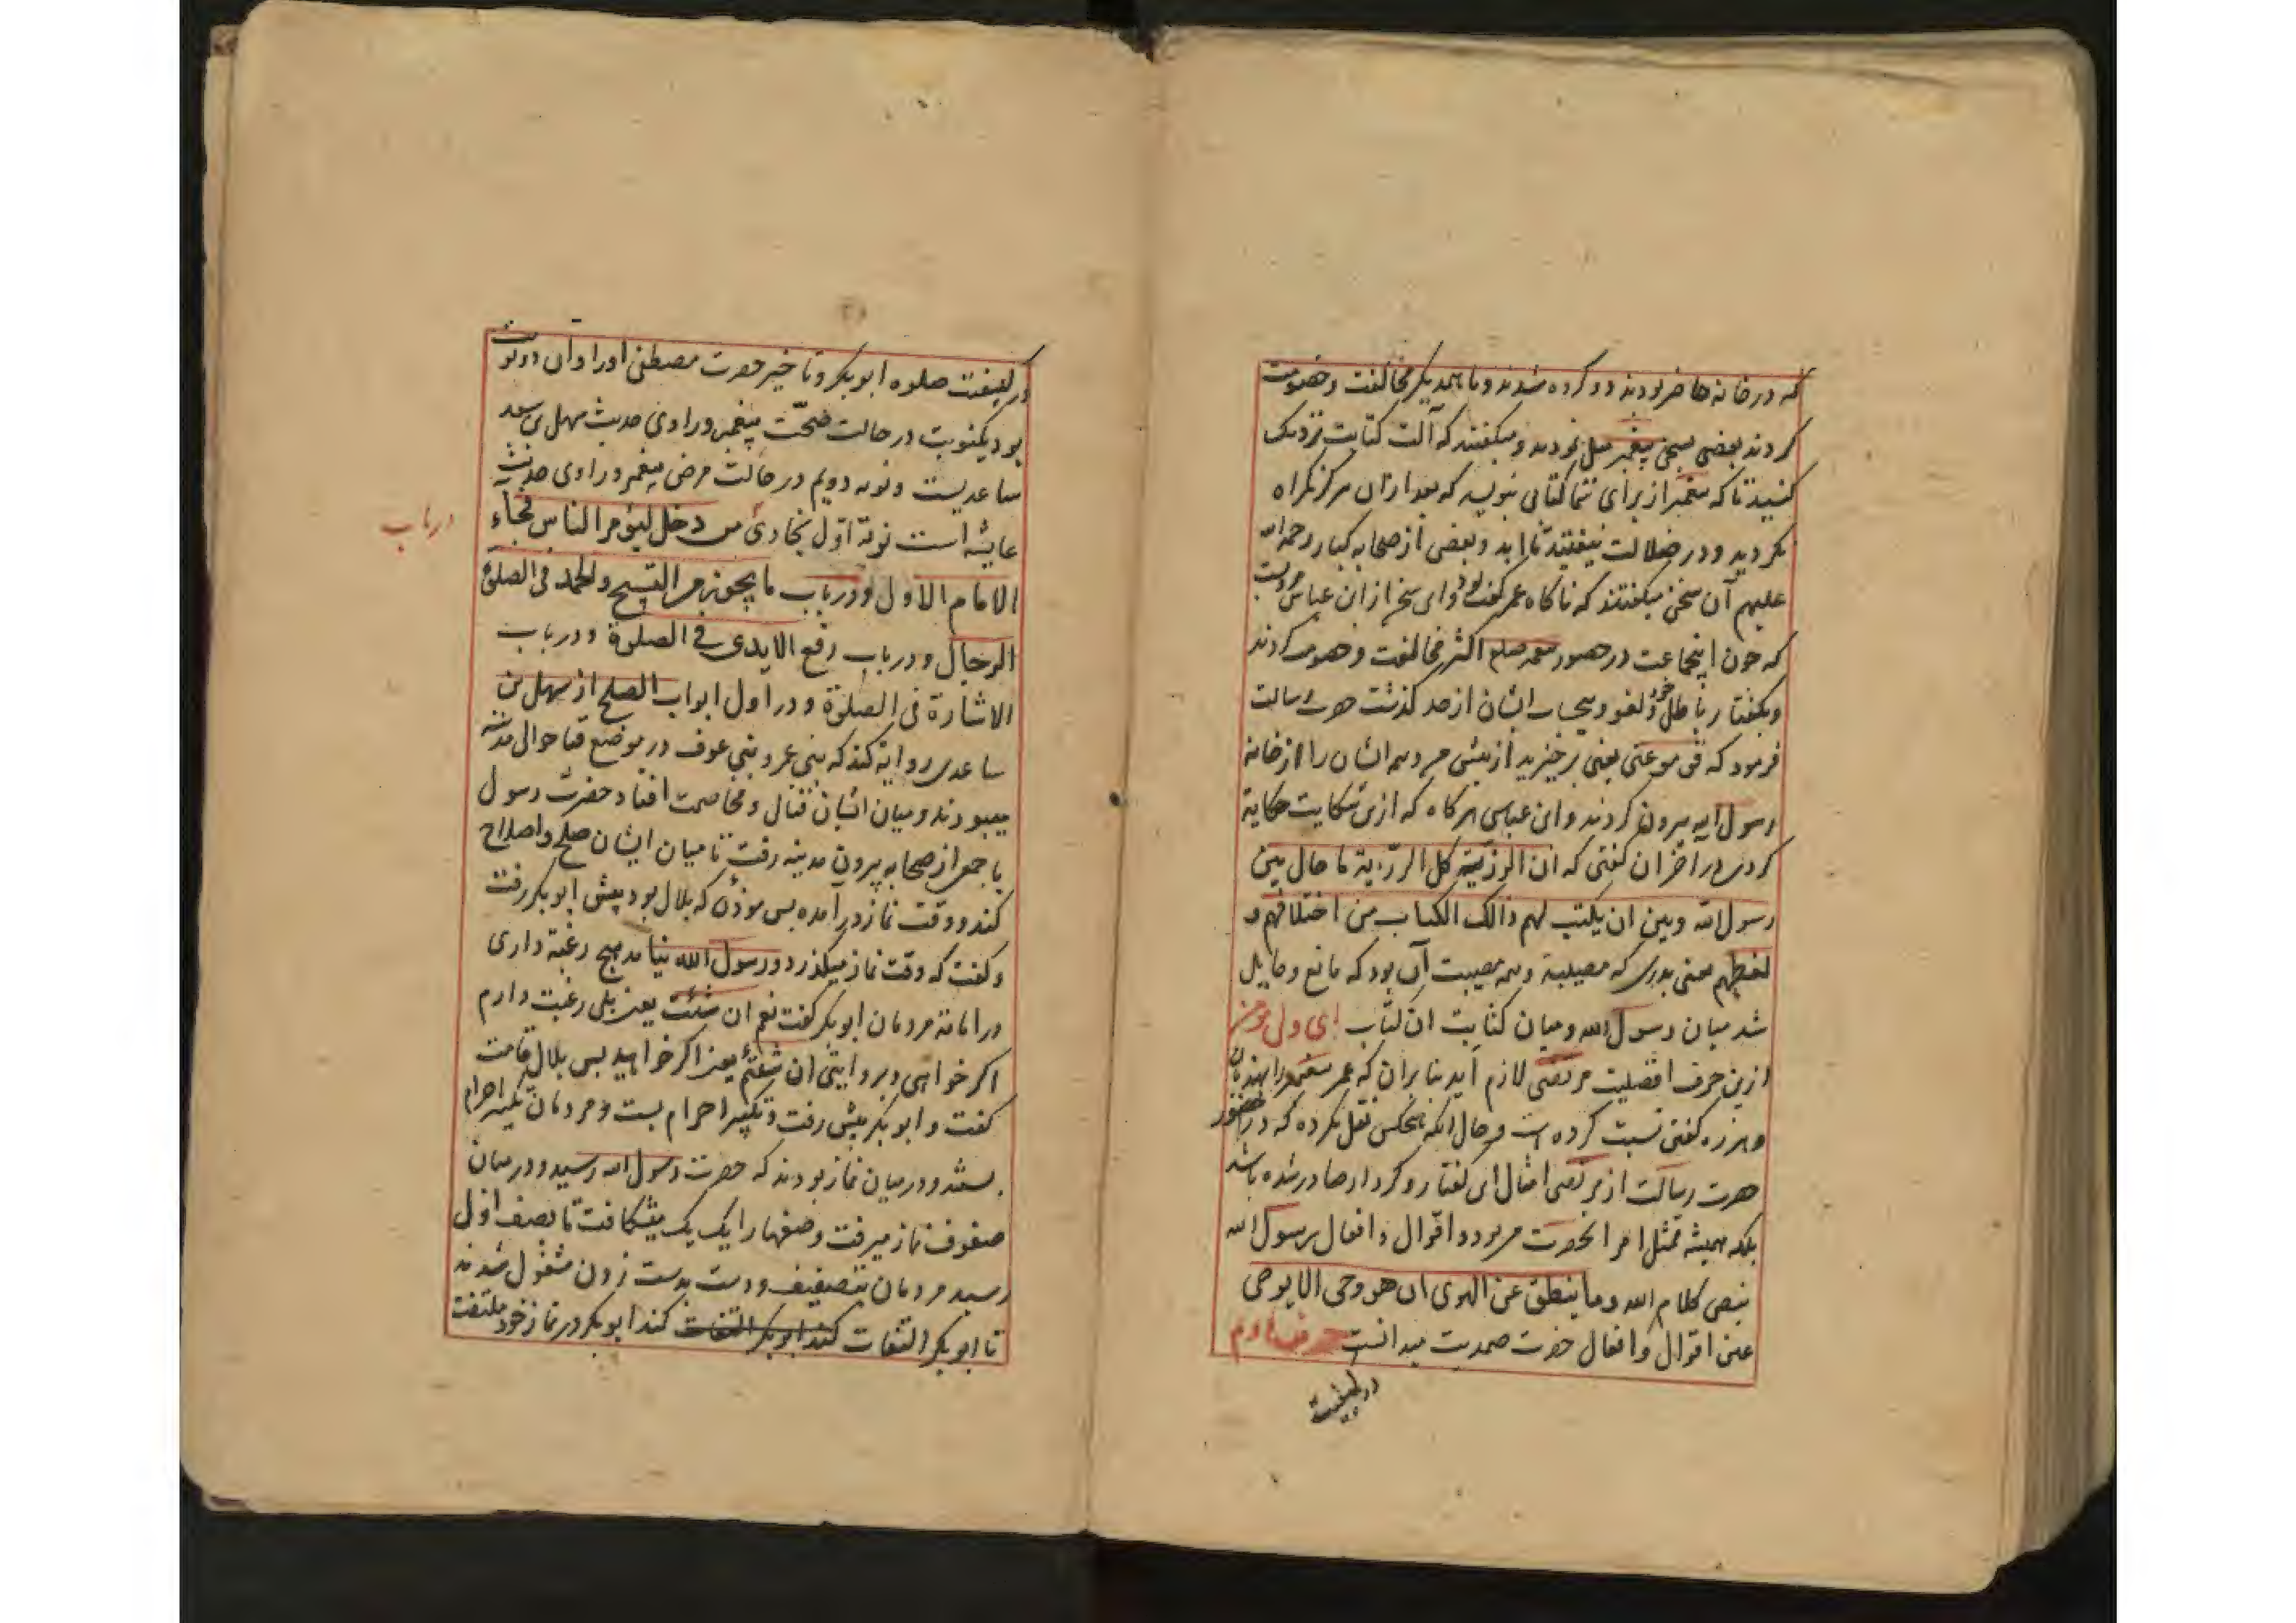 که در خانه حاضر بودند دو کرده شدند و با همدیگر مخالفت و خصومت
کردند بعضی بسخن پیغمبر میل نمودند و میکفتند که آلت کتابت نزدیک
کنید تا که پیغمبر از برای شما کتابی نویسد که بعد از ان هرکز کمراه
نکردید و در ضلالت نیفتید تا ابد و بعضی از صحابه کبار رحمه الله
علیهم آن سخن میکفتند که ناکاه عمر کفته بود و این سخن از ابن عباس مرویست
که چون اینجماعت در حضور پیغمبر صلعم اکثر مخالفت و خصومت کردند
و بکفتار باطل خود و لغو و بیحساب ایشان از حد کذشت حضرت رسالت
فرمود که قوموا عنی یعنی برخیزید از پیش من و همه ایشان را از خانه
رسول الله بیرون کردند و ابن عباس هر کاه که ازین شکایت حکایة
کردی در اخر ان کفتی که ان الرزیة کل الرزیة ما حال بین
رسول الله و بین ان یکتب لهم ذالک الکتاب من اختلافهم و
لغطهم یعنی بدرستی که مصیبة و همه مصیبت آن بود که مانع و حایل
شد میان رسول الله و میان کتابت ان کتاب ای دل من
ازین حرف افضلیت مرتضی لازم آید بنابران که عمر پیغمبر را بهذیان
و هرزه کفتن نسبت کرده است و حال آنکه هیچکس نقل نکرده که در حضور
حضرت رسالت از مرتضی امثال این کفتار و کردار صادر شده باشد
بلکه همیشه ممتثل امر آنحضرت می بود و اقوال و افعال رسول الله
بنص کلام الله و ما ینطق عن الهوی ان هو وحی الا یوحی
عین اقوال و افعال حضرت صمدیت میدانست حرف دوم
در کیفیت
در کیفیت صلوه ابوبکر و تاخیر حضرت مصطفی او را و ان دو نوبت
بود یکنوبت در حالت صحّت پیغمبر و راوی حدیث سهل بن سعد
ساعدیست و نوبه دویم در حالت مرض پیغمبر و راوی حدیث
عایشه است نوبة اوّل بخاری من دخل لیؤم الناس فجاء
درباب
الامام الاول و درباب ما یجوز من التسبیح و الحمد فی الصلوة
الرجال و درباب رفع الایدی فی الصلوة و درباب
الاشارة فی الصلوة و در اول ابواب الصلح از سهل بن
ساعدی روایة کند که بنی عمرو بنی عوف در موضع قبا حوالی مدینه
میبودند و میان ایشان قتال و مخاصمت افتاد حضرت رسول
با جمعی از صحابه بیرون مدینه رفت تا میان ایشان صلح و اصلاح
کند و وقت نماز در آمده پس موذن که بلال بود پیش ابوبکر رفت
و کفت که وقت نماز میکذرد و رسول الله نیامد هیچ رغبة داری
در امامة مردمان ابوبکر کفت نعم ان شئت یعنی بلی رغبت دارم
اکر خواهی و بروایتی ان شئتم یعنی اکر خواهید پس بلال قامت
کفت و ابوبکر پیش رفت و تکبیر احرام بست و مردمان تکبیر احرام
بستند و در میان نماز بودند که حضرت رسول الله رسید و در میان
صفوف نماز میرفت و صفها را یک یک میشکافت تا بصف اول
رسید مردمان بتصفیف و دست بدست زدن مشغول شدند
تا ابوبکر التفات کند ابوبکر التفات کند ابوبکر در نماز خود ملتفت